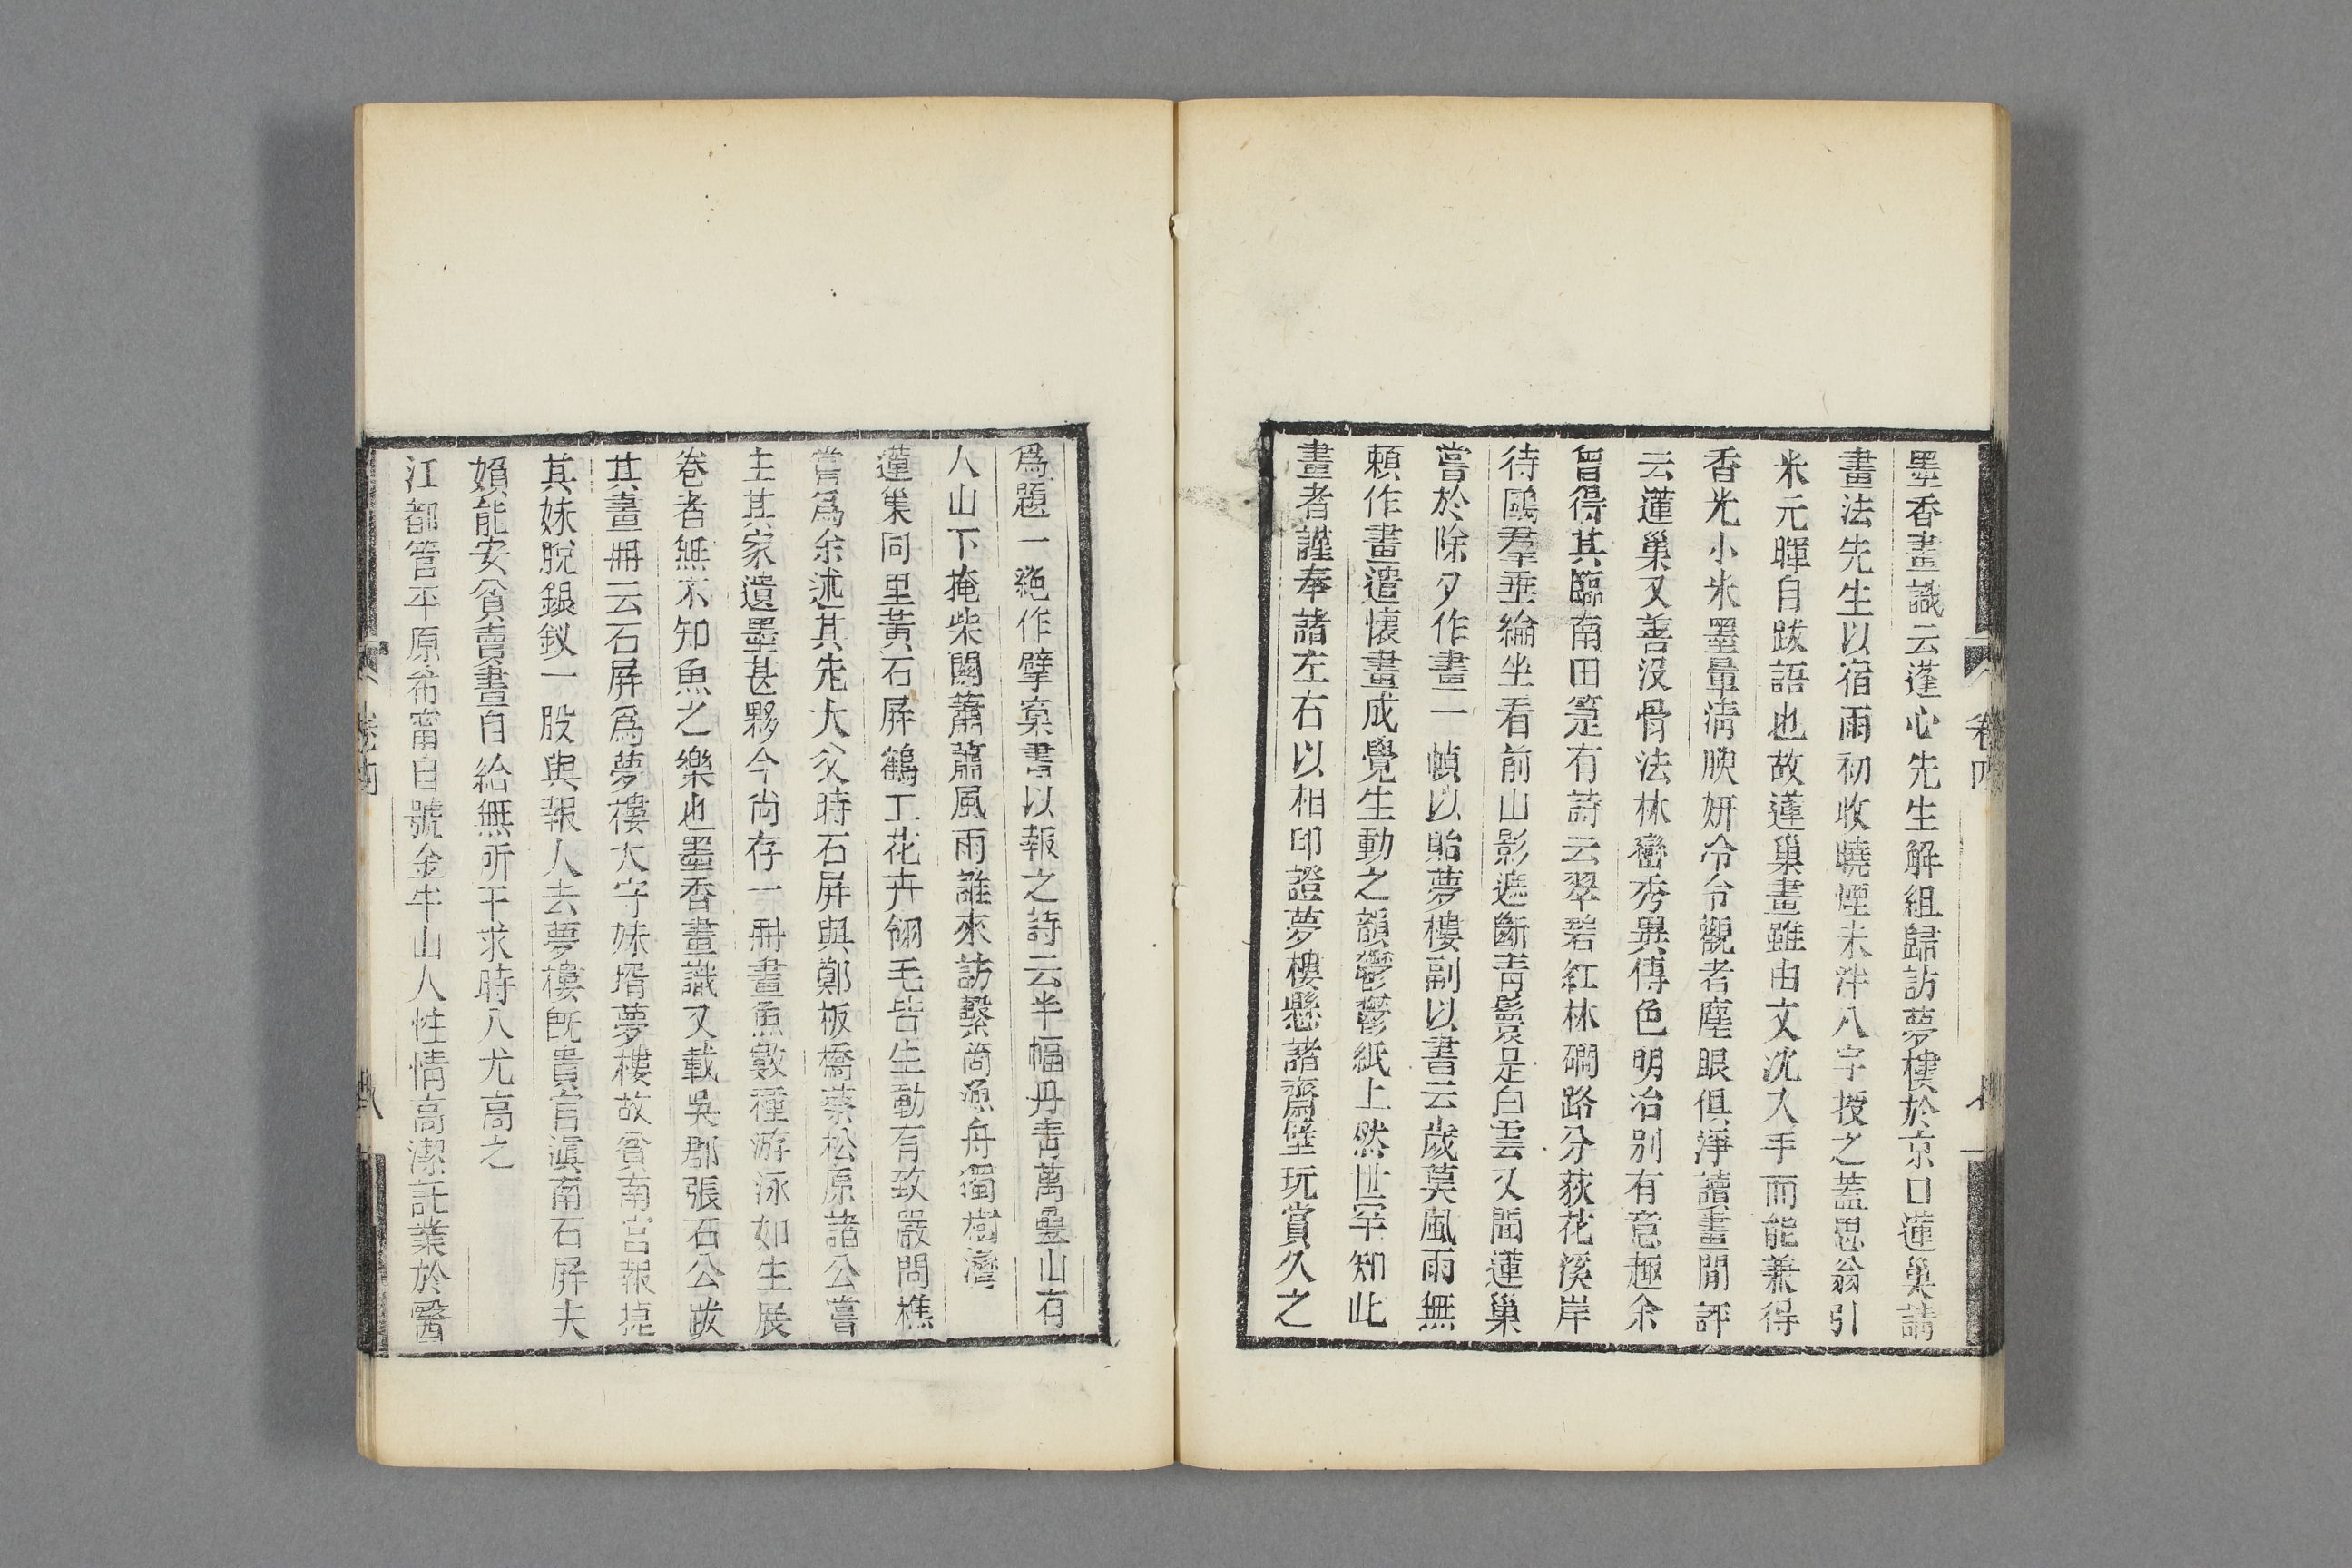 墨香畫識云蓬心先生解組歸訪夢樓於京口蓮巢請
畫法先生以宿雨初收曉煙未泮八字授之蓋思翁引
米元暉自跋語也故蓮巢畫雖由文沈入手而能兼得
香光小米墨暈清腴妍冷令觀者塵眼俱淨讀畫閒評
云蓮巢又善没骨法林巒秀異傅色明冶别有意趣余
曾得其臨南田箑有詩云翠碧紅林磵路分荻花溪岸
待鷗羣垂綸坐看前山影遮斷靑鬟是白雲又聞蓮巢
嘗於除夕作畫一幀以貽夢樓副以書云歲莫風雨無
頼作畫遣懷畫成覺生動之韻鬱鬱紙上然世罕知此
畫者謹奉諸左右以相印證夢樓懸諸齋壁玩賞久之
卷四
爲題一絶作擘窠書以報之詩云半幅丹靑萬疊山有
人山下掩柴關蕭蕭風雨誰來訪繫箇漁舟獨樹灣
蓮巢同里黃石屏鶴工花卉翎毛皆生動有致嚴問樵
嘗爲余述其先大父時石屏與鄭板橋蔡松原諸公嘗
主其家遺墨甚夥今尚存一冊畫魚數種游泳如生展
卷者無不知魚之樂也墨香畫識又載吳郡張石公跋
其畫冊云石屏爲夢樓大字妹壻夢樓故貧南宫報捷
其妹脫銀釵一股與報人去夢樓旣貴官滇南石屏夫
婦能安貧賣畫自給無所干求時人尤高之
江都管平原希甯自號金牛山人性情高潔託業於醫